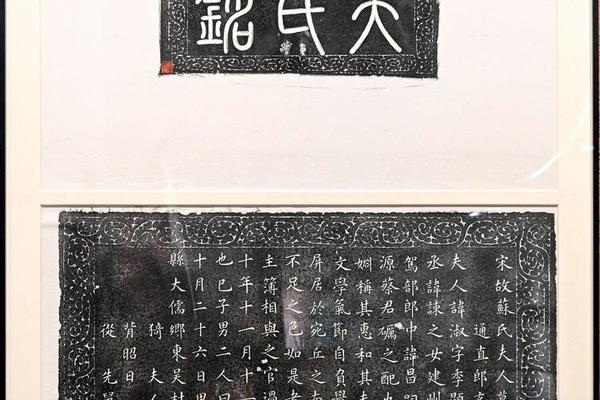 夫
氏
銘
宋故蘇氏夫人墓
通直郎玄
夫人諱淑字季顥
丞諱諫之女建州
駕部郎中諱昌詞
源蔡君礪之配也
姻稱其惠和其夫
文學氣節自負舉
屏居於宛丘之南
不足之色如是者
主簿相與之官過
十年十一月十
也已子男二人曰
十月二十六日男
縣大儒鄉東吳村
猗夫人
背昭日
從先舅